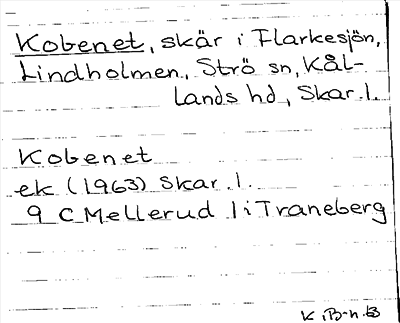 Kobenet, skär i Flarkesjön,
Lindholmen, Strö sn, Kål-
lands hd, Skar. l.
Kobenet
ek (1963) Skar. l.
9 C Mellerud l i Traneberg